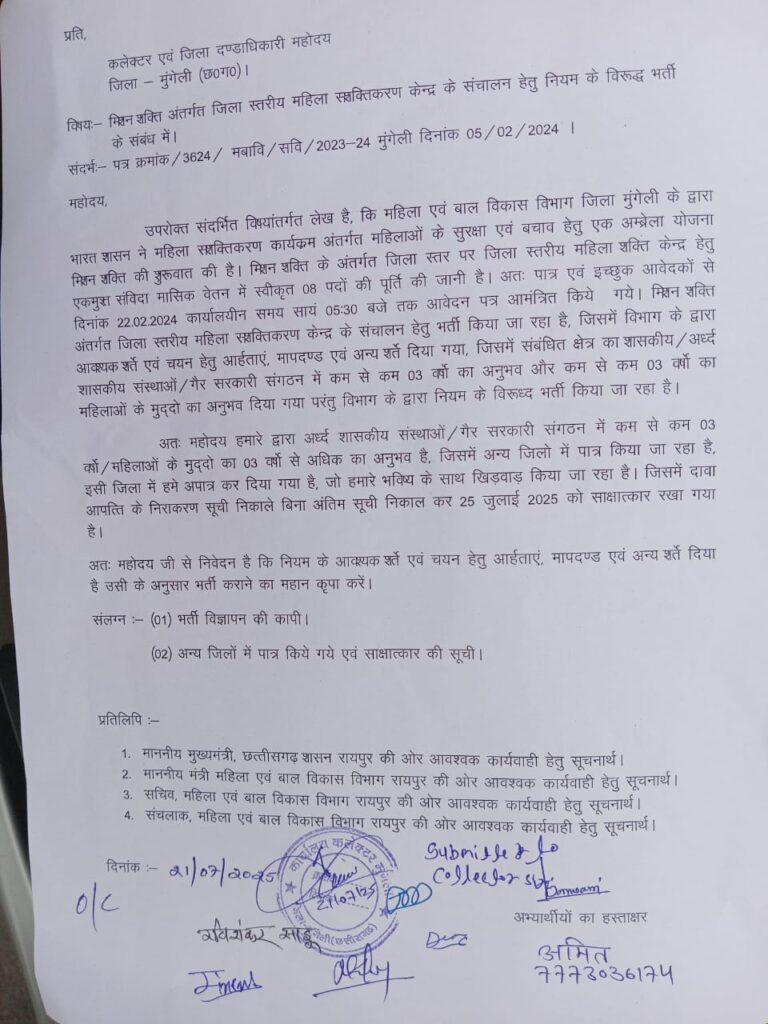 प्रति,
कलेक्टर एवं जिला दण्डाधिकारी महोदय
जिला – मुंगेली (छ0ग0)।
विषयः– मिशन शक्ति अंतर्गत जिला स्तरीय महिला सशक्तिकरण केन्द्र के संचालन हेतु नियम के विरूद्ध भर्ती
के संबंध में।
संदर्भः– पत्र क्रमांक/3624/ मबावि/सवि/2023–24 मुंगेली दिनांक 05/02/2024 ।
महोदय,
उपरोक्त संदर्भित विषयांतर्गत लेख है, कि महिला एवं बाल विकास विभाग जिला मुंगेली के द्वारा
भारत शासन ने महिला सशक्तिकरण कार्यक्रम अंतर्गत महिलाओं के सुरक्षा एवं बचाव हेतु एक अम्ब्रेला योजना
मिशन शक्ति की शुरूवात की है। मिशन शक्ति के अंतर्गत जिला स्तर पर जिला स्तरीय महिला शक्ति केन्द्र हेतु
एकमुश्त संविदा मासिक वेतन में स्वीकृत 08 पदों की पूर्ति की जानी है। अतः पात्र एवं इच्छुक आवेदकों से
दिनांक 22.02.2024 कार्यालयीन समय सायं 05:30 बजे तक आवेदन पत्र आमंत्रित किये गये। मिशन शक्ति
अंतर्गत जिला स्तरीय महिला सशक्तिकरण केन्द्र के संचालन हेतु भर्ती किया जा रहा है, जिसमें विभाग के द्वारा
आवश्यक शर्ते एवं चयन हेतु आर्हताएं, मापदण्ड एवं अन्य शर्ते दिया गया, जिसमें संबंधित क्षेत्र का शासकीय/अर्ध्द
शासकीय संस्थाओं/गैर सरकारी संगठन में कम से कम 03 वर्षो का अनुभव और कम से कम 03 वर्षो का
महिलाओं के मुद्दो का अनुभव दिया गया परंतु विभाग के द्वारा नियम के विरूध्द भर्ती किया जा रहा है।
अतः महोदय हमारे द्वारा अर्ध्द शासकीय संस्थाओं/गैर सरकारी संगठन में कम से कम 03
वर्षो/महिलाओं के मुद्दो का 03 वर्षो से अधिक का अनुभव है, जिसमें अन्य जिलो में पात्र किया जा रहा है,
इसी जिला में हमे अपात्र कर दिया गया है, जो हमारे भविष्य के साथ खिड़वाड़ किया जा रहा है। जिसमें दावा
आपत्ति के निराकरण सूची निकाले बिना अंतिम सूची निकाल कर 25 जुलाई 2025 को साक्षात्कार रखा गया
है।
अतः महोदय जी से निवेदन है कि नियम के आवश्यक शर्ते एवं चयन हेतु आर्हताएं, मापदण्ड एवं अन्य शर्ते दिया
है उसी के अनुसार भर्ती कराने का महान कृपा करें।
संलग्न :– (01) भर्ती विज्ञापन की कापी।
(02) अन्य जिलों में पात्र किये गये एवं साक्षात्कार की सूची।
प्रतिलिपि :–
1. माननीय मुख्यमंत्री, छत्तीसगढ़ शासन रायपुर की ओर आवश्वक कार्यवाही हेतु सूचनार्थ।
2. माननीय मंत्री महिला एवं बाल विकास विभाग रायपुर की ओर आवश्वक कार्यवाही हेतु सूचनार्थ।
3. सचिव, महिला एवं बाल विकास विभाग रायपुर की ओर आवश्वक कार्यवाही हेतु सूचनार्थ।
4. संचलाक, महिला एवं बाल विकास विभाग रायपुर की ओर आवश्वक कार्यवाही हेतु सूचनार्थ।
दिनांक :– 21/07/2025
कार्यालय कलेक्टर मुंगेली
21/07/25
(छत्तीसगढ़)
Submitted to
Collector
O/C
अभ्यार्थीयों का हस्ताक्षर
रविशंकर साहू
अमित
7773036174